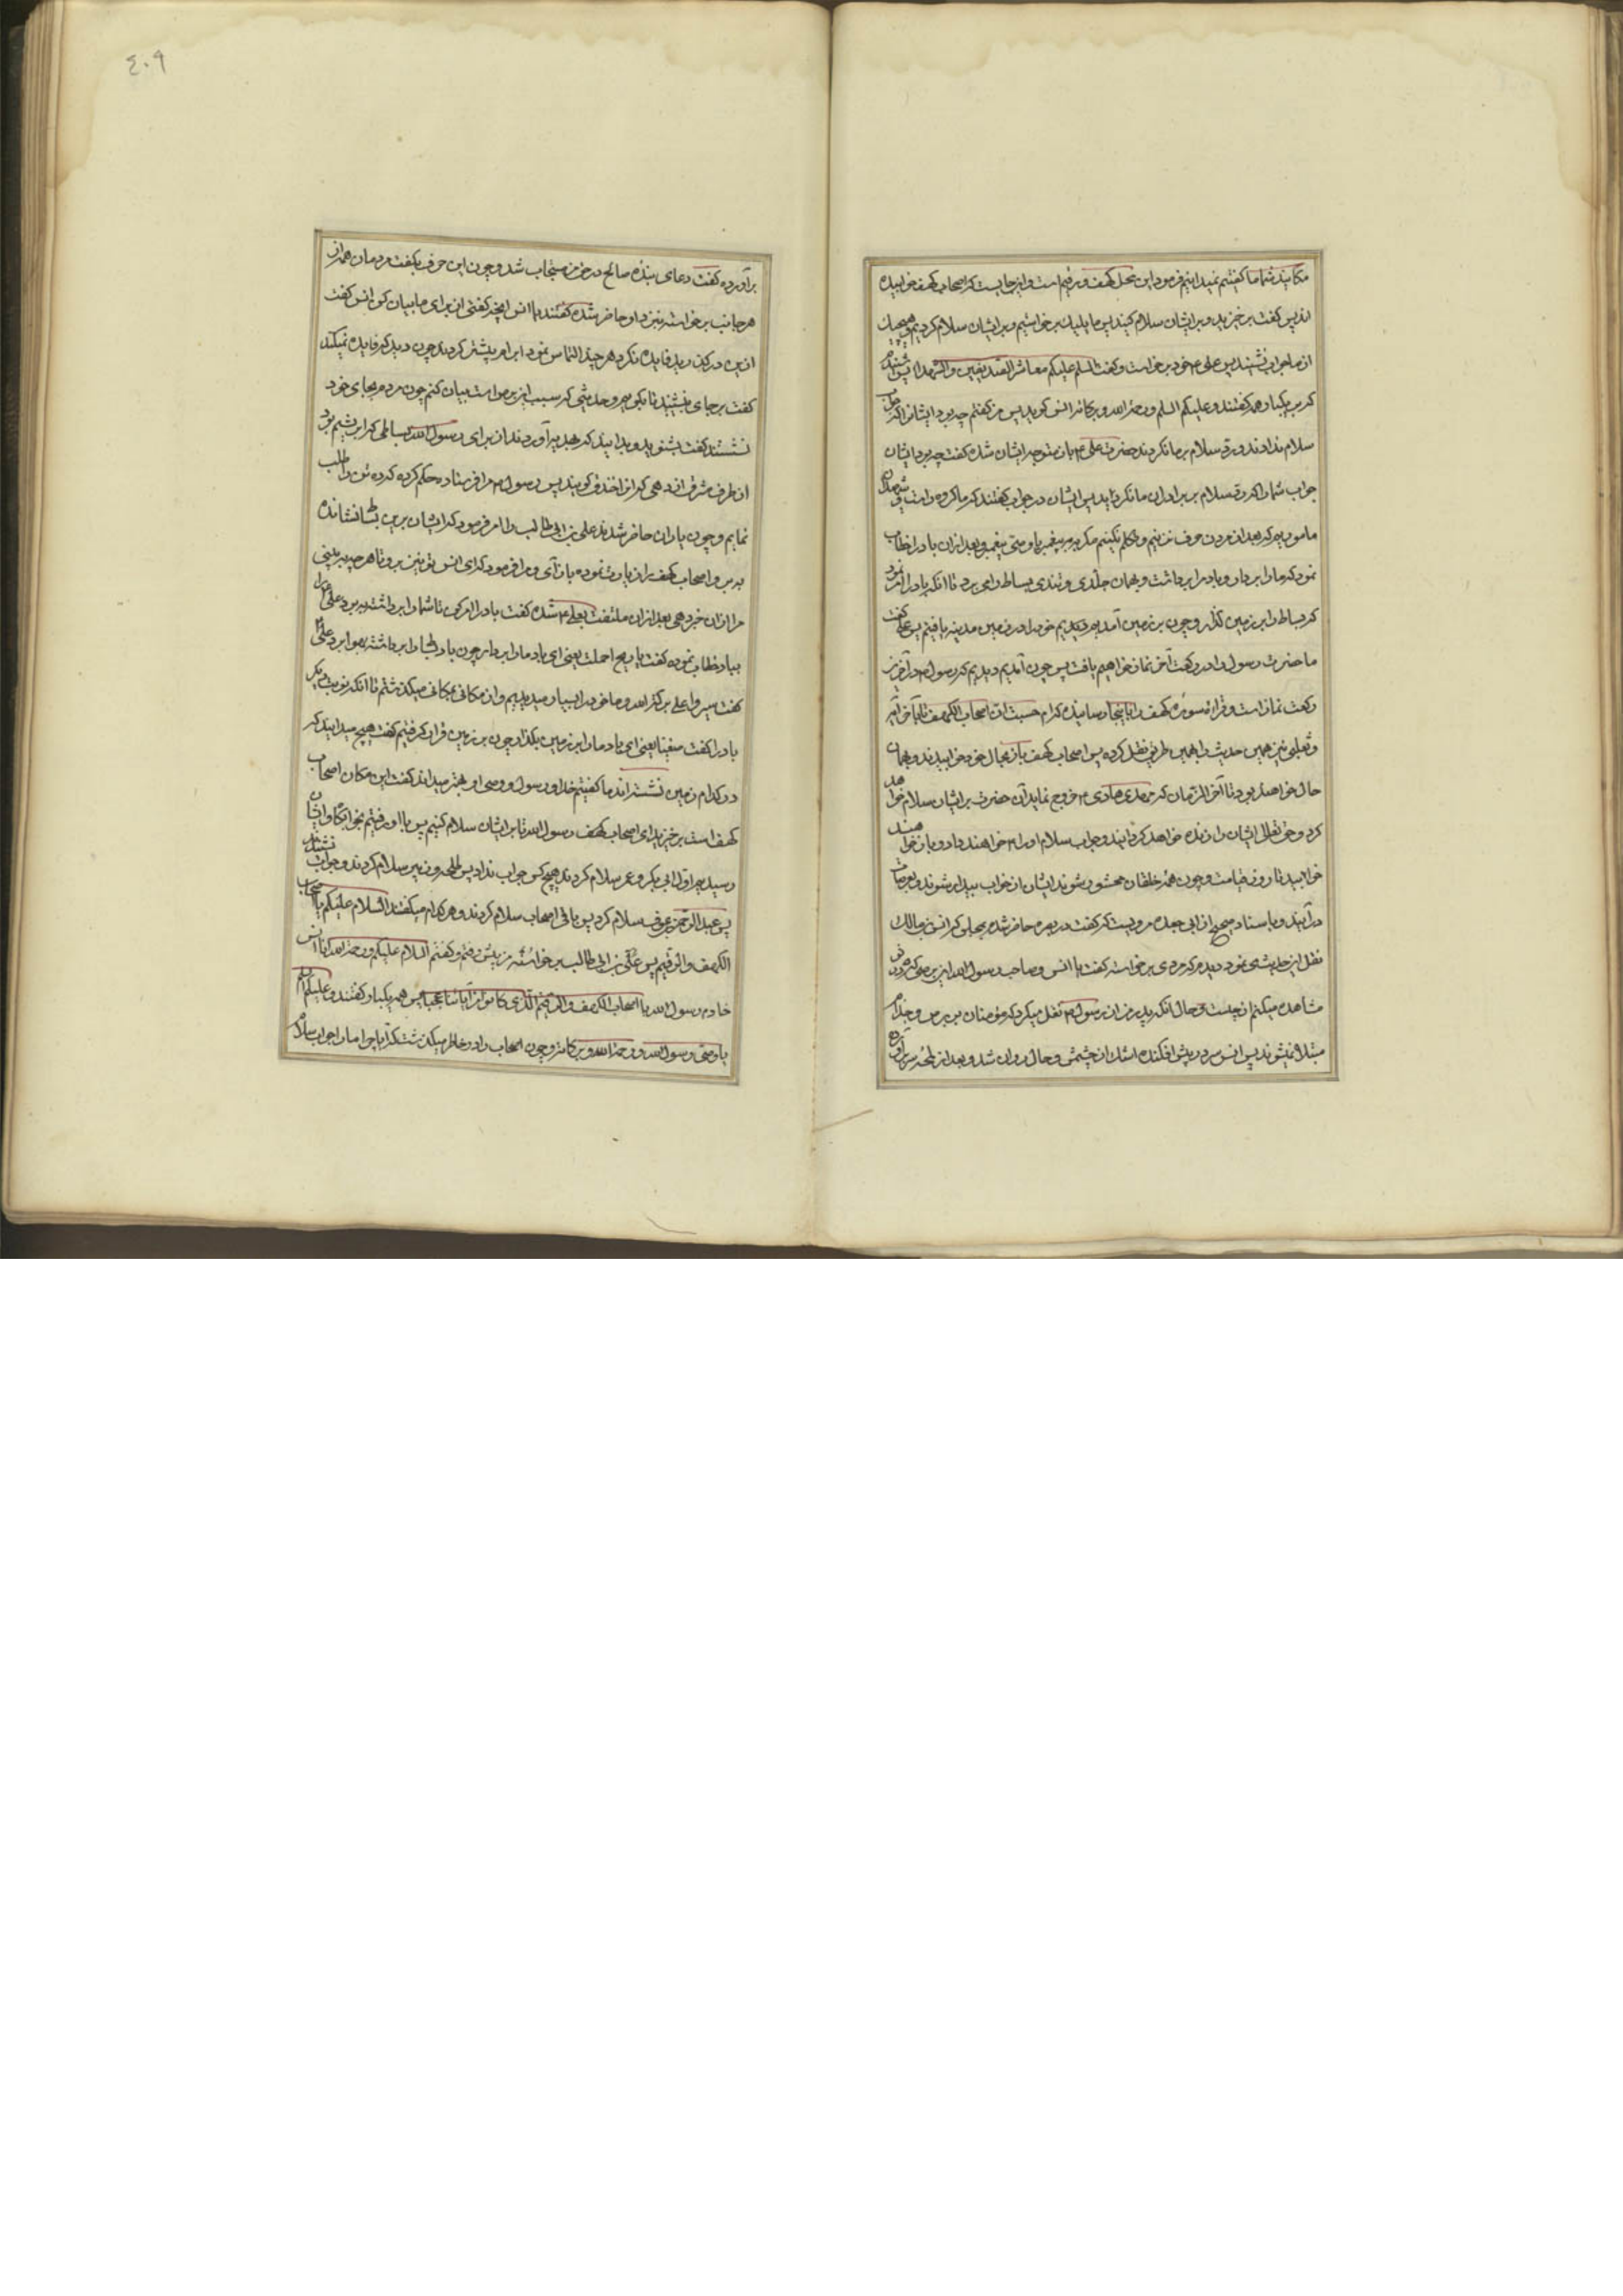 مکانید شما ما کفتیم نمیدانیم فرمود این محل کهف و رقیم است و این جاییست که اصحاب کهف خوابیده
اند پس کفت برخیزید و برایشان سلام کنید پس ما یکیک برخواستیم و برایشان سلام کردیم و هیچیک
از ما جواب نشنید پس علی ع خود برخواست و کفت السلم علیکم معاشر الصدیقین و الشهدا پس شنیدم
که بر یکبار همه کفتند و علیکم السلم و رحمة الله و برکاته انس کوید پس من کفتم چه بود ایشانرا که
سلام ندادند و رد سلام بر ما نکردند حضرت علی ع باز متوجه ایشان شده کفت چه بود ایشان
جواب شما را که رد سلام بر برادران ما نکردید پس ایشان در جواب کفتند که ما کروه راست و شهیدان
ماموریم که بعد از مردن حرف نزنیم و تکلم نکنیم مکر به پیغمبر یا وصی پیغمبر و بعد ازان باد را خطاب
نمود که ما را بردار و باد ما را برداشت و بهمان جلدی و تندی بساط را می برد تا آنکه باد را امر نمود
که بساط را بر زمین کذار و چون بر زمین آمدیم دیدیم خود را در زمین مدینه یافتیم پس علی کفت
ما حضرت رسول را در رکعت آخر نماز خواهیم یافت پس چون آمدیم دیدیم که رسول ص در آخرین
رکعت نماز است و قرائت سوره کهف را باینجا رسانیده که ام حسبت ان اصحاب الکهف تا بآخر آیه
و ثعلبی نیز همین حدیث را بهمین طریق نقل کرده پس اصحاب کهف باز بحال خود خوابیدند و بهمان
حال خواهند بود تا آخر الزمان که مهدی هادی ع خروج نماید آن حضرت برایشان سلام خواهد
کرد و حق تعالی ایشان را زنده خواهد کردانید و جواب سلام او را خواهند داد و باز خواهند
خوابید تا روز قیامت و چون همه خلقان محشور شوند ایشان از خواب بیدار شوند و بعرصات
درآیند و باسناد صحیح از ابی جعده مرویست که کفت در بصره حاضر شدم بمجلس که انس بن مالک
نقل این حدیث می نمود دیدم که مردی برخواسته کفت یا انس و صاحب رسول الله این برص که در تو
مشاهده میکنم از چیست و حال آنکه پدر من از رسول ص نقل میکرد که مؤمنان ببرص و جذام
مبتلا نمیشوند پس انس سر در پیش افکنده اشک از چشمش در حال روان شد و بعد از لمحه سر برآورده
٤٠٩
برآورده کفت دعای بنده صالح در حق من مستجاب شد و چون این حرف بکفت مردمان همه از
هر جانب برخواسته نزد او حاضر شده کفتند یا انس آنچه کفتی از برای ما بیان کن انس کفت
ازین درکذرید فایده نکرد هر چند التماس نمود ابرام بیشتر کردند چون دید که فایده نمیکند
کفت بر جای بنشینید تا بکویم و حدیثی که سبب این برص است بیان کنم چون مردم بجای خود
نشستند کفت بشنوید و بدانید که بهدیه آوردند از برای رسول الله بساطی که ابریشم بود
از طرف مشرق از دهی که انرا خندف کویند پس رسول ص مرا فرستاد و حکم کرده که ده تن را طلب
نمایم و چون یاران حاضر شدند علی بن ابی طالب را امر فرمود که ایشان برین بساط نشانده
ببرد و اصحاب کهف را زیارت نموده باز آی و مرا فرمود که ای انس تو نیز برو تا هر چه ببینی
مرا ازان خبر دهی بعد ازان ملتفت بعلی ع شده کفت باد را امر کن تا شما را برداشته ببرد علی ع
بباد خطاب نموده کفت یا ریح احملنا یعنی ای باد ما را بردار چون باد بساط را برداشته بهوا برد علی ع
کفت سیروا علی برکة الله و ما خود را بباد میدیدیم و از مکانی بمکانی میکذشتیم تا آنکه نوبت دیکر
باد را کفت ضعینا یعنی ای باد ما را بر زمین بکذار چون بر زمین قرار کرفتیم کفت هیچ میدانید که
در کدام زمین نشسته اند ما کفتیم خدا و رسول و وصی او بهتر میداند کفت این مکان اصحاب
کهف است برخیزید ای اصحاب رسول الله تا برایشان سلام کنیم پس با او رفتیم بخوابکاه ایشان
رسیدیم اول ابی بکر و عمر سلام کردند هیچ کس جواب نداد پس طلحه و زبیر سلام کردند و جواب نشنیدند
پس عبد الرحمن بن عوف سلام کرد پس باقی اصحاب سلام کردند و هر کدام میکفتند السلام علیکم یا اصحاب
الکهف و الرقیم پس علی بن ابی طالب برخواسته من پیش رفتم و کفتم السلام علیکم و رحمة الله انا انس
خادم رسول الله یا اصحاب الکهف و الرقیم الذی کانوا من آیاتنا عجبا پس همه یکبار کفتند و علیکم السلام
یا وصی رسول الله و رحمة الله و برکاته و چون اصحاب را در خاطر میکذشت که آیا چرا ما را جواب سلام